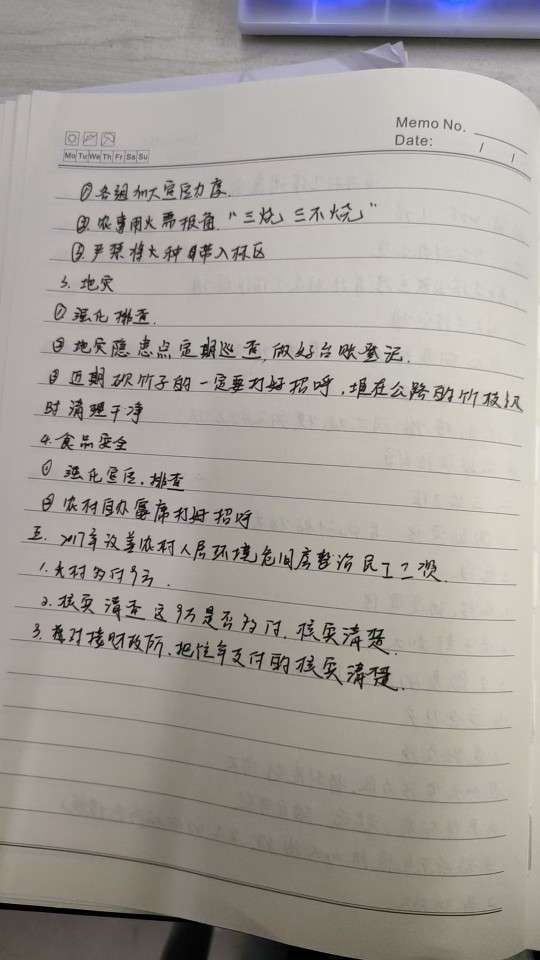 Memo No.
Date: / /
Mo Tu We Th Fr Sa Su
①各组加大宣传力度.
②农事用火需报备 "三烧三不烧"
③严禁将火种带入林区
3. 地灾
①强化排查.
②地灾隐患点定期巡查,做好台账登记.
③近期砍竹子的一定要打好招呼,堆在公路的竹枝及
时清理干净
4.食品安全
①强化宣传、排查
②农村自办宴席打好招呼
五、2017年改善农村人居环境危旧房整治民工工资.
1.村支付9万.
2.核实清查这9万是否支付,核实清楚.
3.对接财政所,把往年支付的核实清楚.